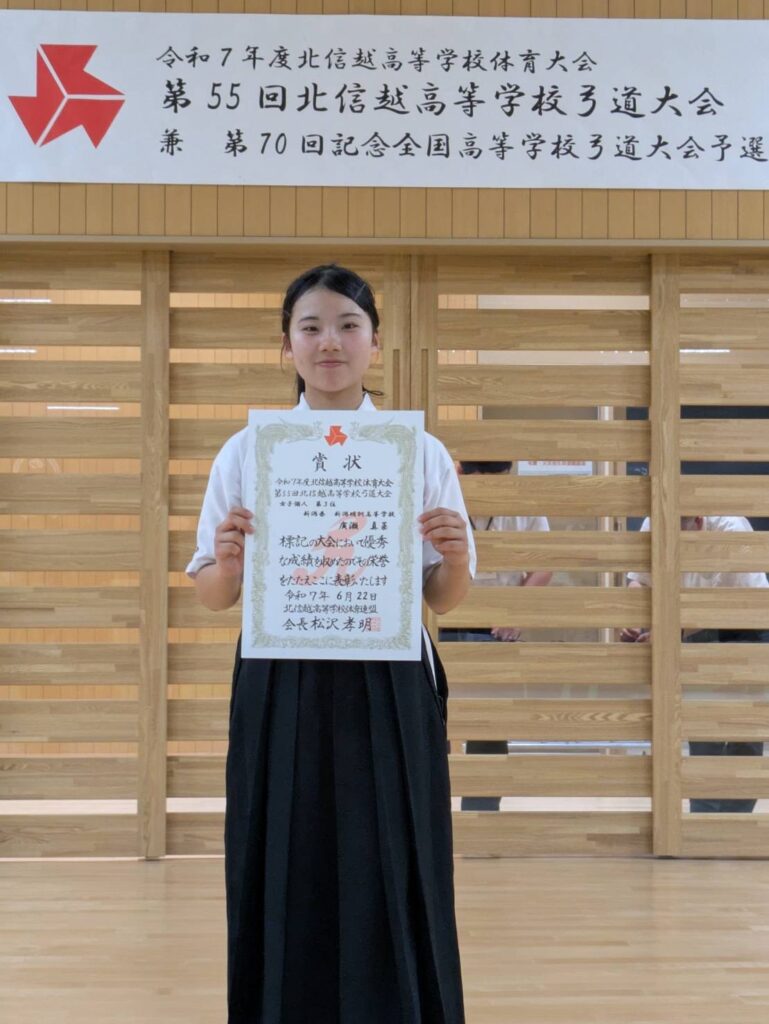 令和7年度北信越高等学校体育大会
第55回北信越高等学校弓道大会
兼 第70回記念全国高等学校弓道大会予選
賞状
令和7年度北信越高等学校体育大会
第55回北信越高等学校弓道大会
女子個人 第3位
新潟県 新潟明訓高等学校
廣瀬 真
標記の大会において優秀
な成績を収めたのでその栄誉
をたたえここに表彰いたします
令和7年 6月22日
北信越高等学校体育連盟
会長 松沢孝明